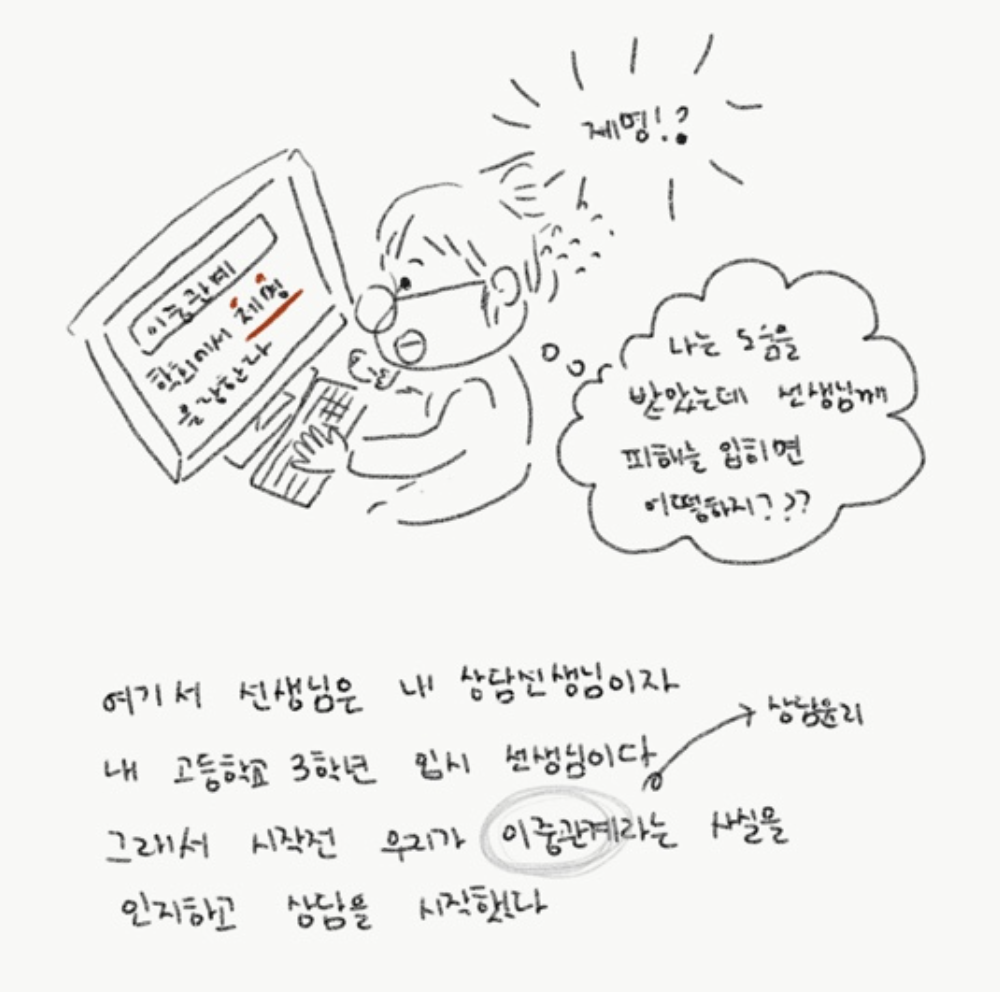 제명!?
이중관계
학회에서 제명
을 당한다
나는 도움을
받았는데 선생님께
피해를 입히면
어떻하지???
여기서 선생님은 내 상담선생님이자
내 고등학교 3학년 입시 선생님이다
상담윤리
그래서 시작전 우리가 이중관계라는 사실을
인지하고 상담을 시작했다